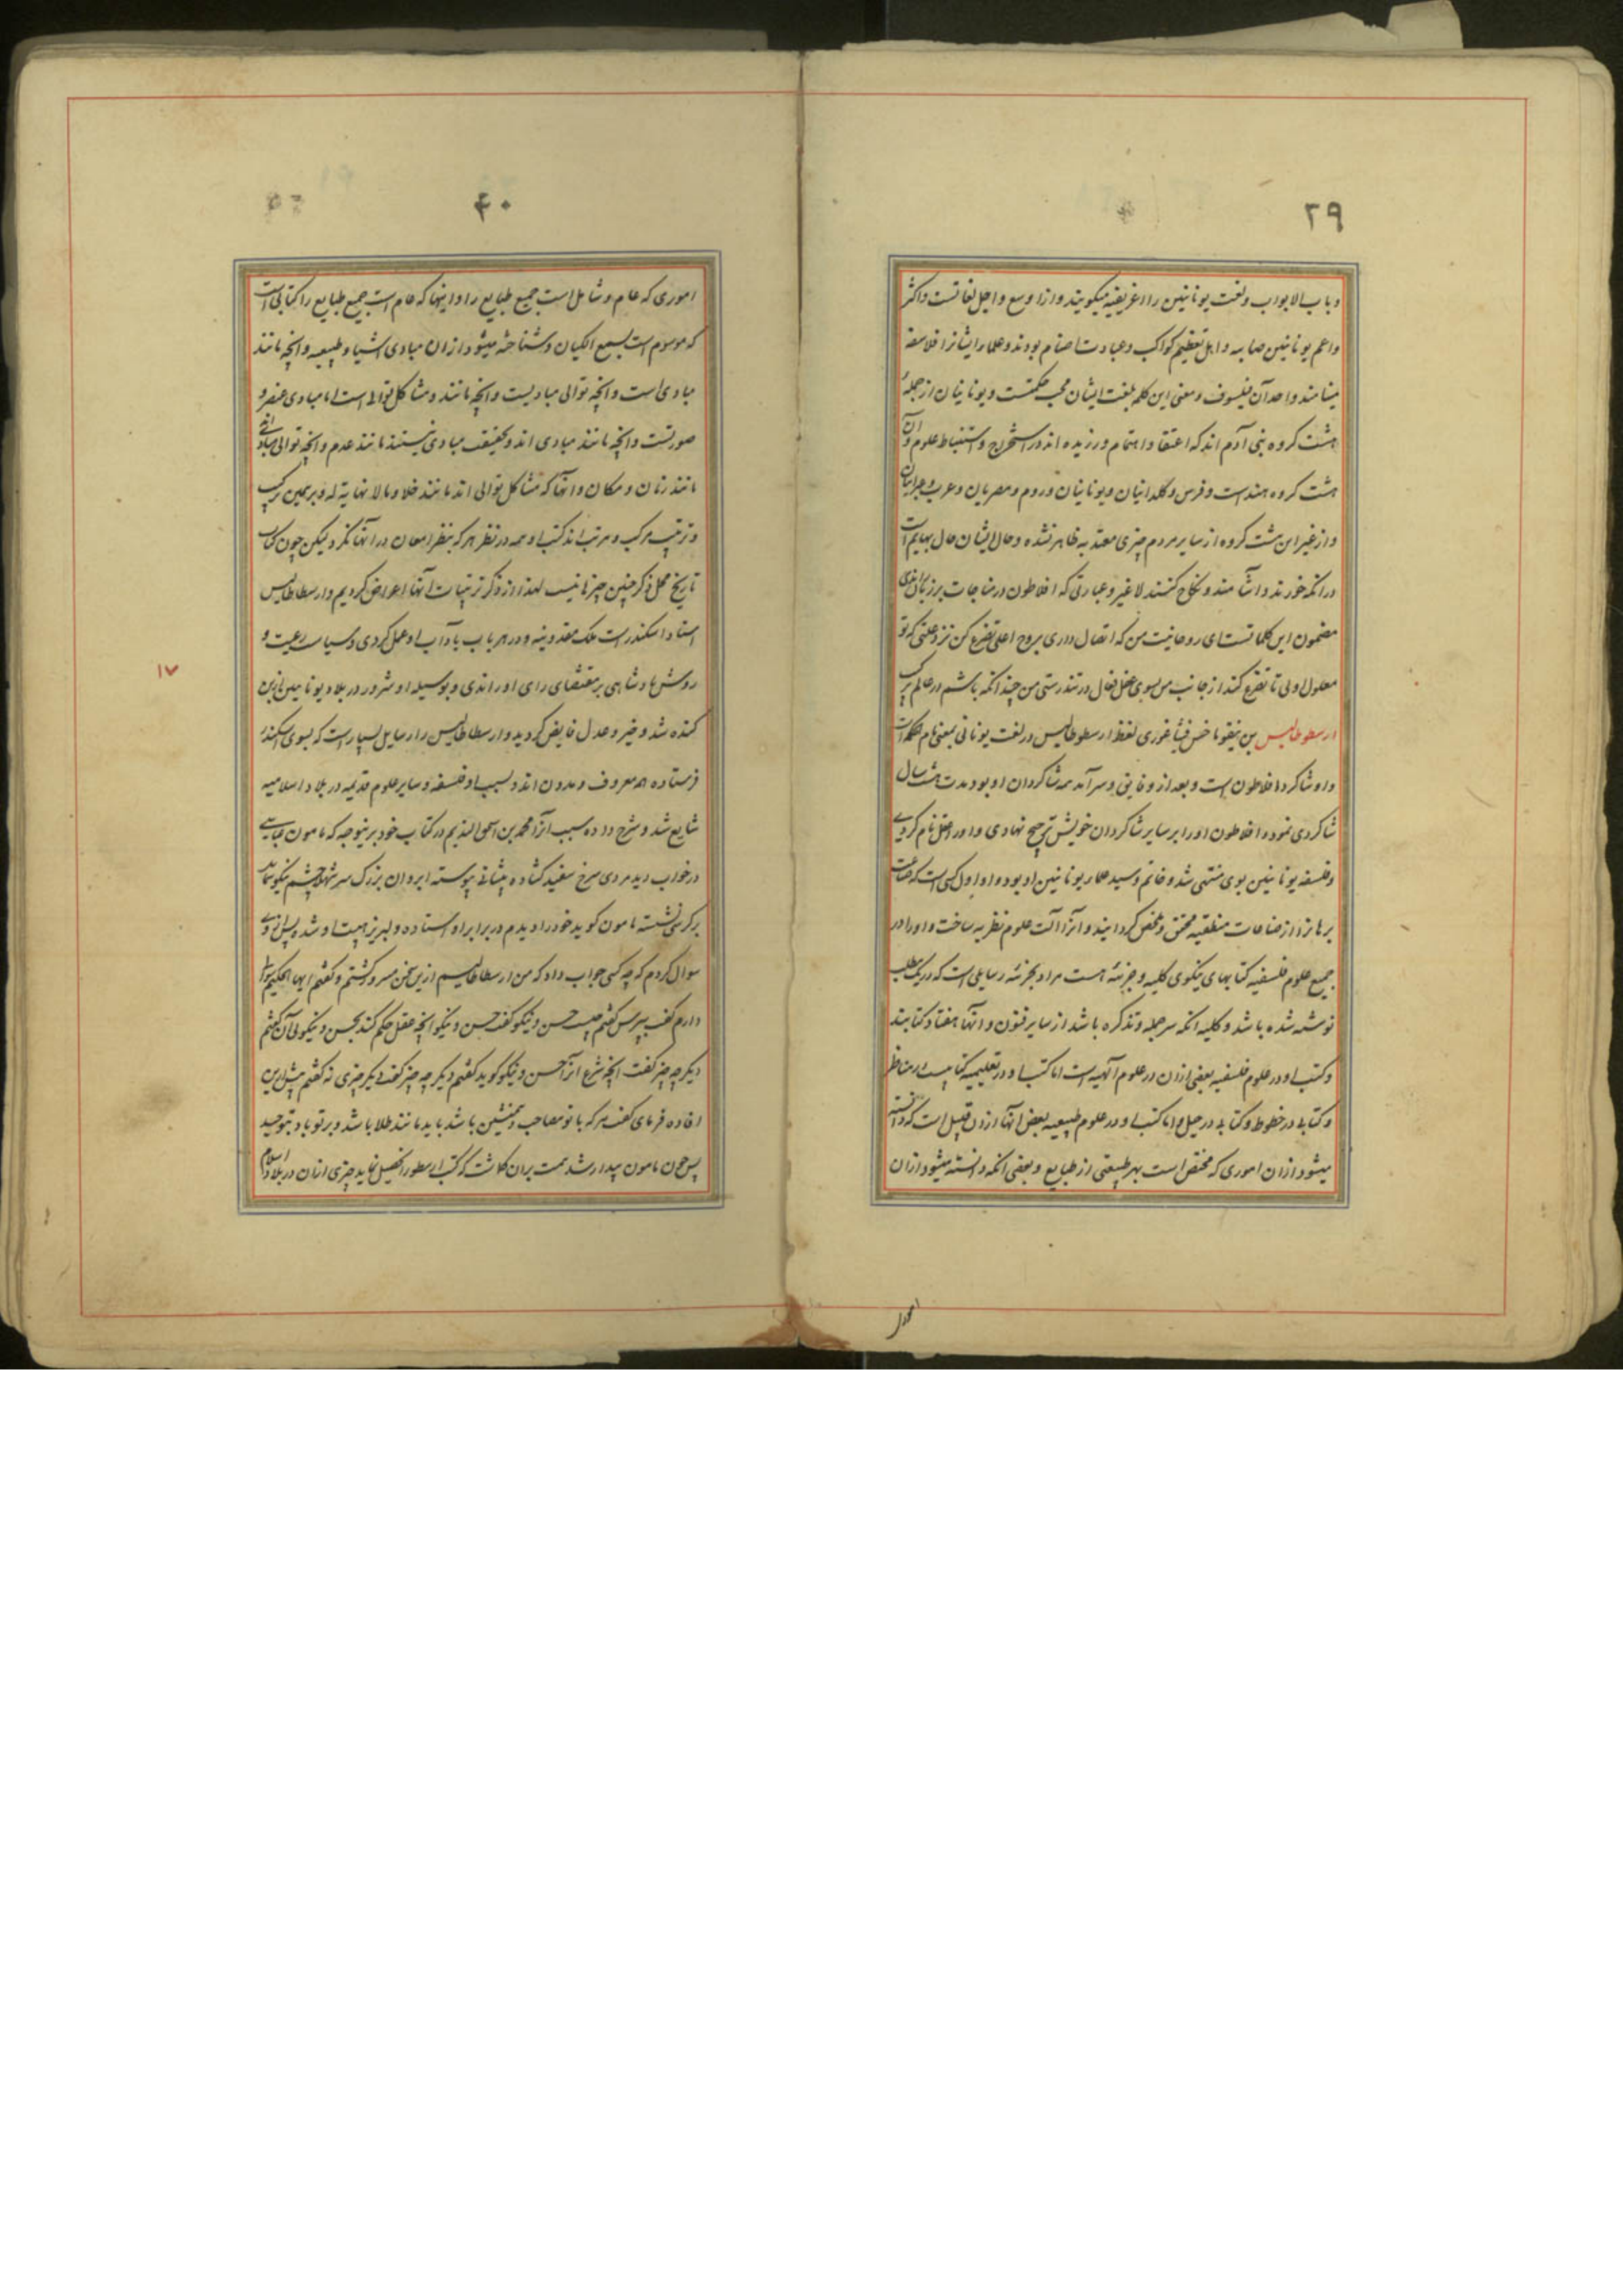 ۲۹
و باب الابواب و لغت یونانیین را اغریقیه میکویند و از اوسع و اجل لغاتست و اکثر
و اعم یونانیین صابیه و اهل تعظیم کواکب و عبادت اصنام بودند و علما ایشانرا فلاسفه
مینامند و احد آن فیلسوف و معنی این کلمه بلغت ایشان محب حکمتست و یونانیان از جملهٔ
هشت کروه بنی آدم اند که اعتقاد و اهتمام ورزیده اند در استخراج و استنباط علوم و آن
هشت کروه هند است و فرس و کلدانیان و یونانیان و روم و مصریان و عرب و عبرانیان
و از غیر این هشت کروه از سایر مردم چیزی معتد به ظاهر نشده و حال ایشان حال بهایم است
در انکه خورند و اشامند و نکاح کنند لا غیر و عبارتی که افلاطون در مناجات بر زبان راندی
مضمون این کلماتست ای روحانیت من که اتصال داری بروح اعلی تضرع کن نزد علتی که تو
معلول ولی تا تضرع کند از جانب من بسوی عقل فعال در تندرستی من چندانکه باشم در عالم ترکیب
ارسطوطالیس بن نیقوماخس فیثاغوری لفظ ارسطوطالیس در لغت یونانی بمعنی تام الحکمه است
و او شاکرد افلاطون است و بعد از وفاتی و سرآمد همه شاکردان او بود مدت هشت سال
شاکردی نموده افلاطون او را بر سایر شاکردان خویش ترجیح نهادی و او را عقل نام کردی
و فلسفه یونانیین بوی منتهی شد و خاتم و سید علماء یونانیین او بود و او اول کسی است که صناعت
برهانرا از صناعات منطقیه محقق و ملخص کردانیده و آنرا آلت علوم نظریه ساخت و او را در
جمیع علوم فلسفیه کتابهای نیکوی کلیه و جزئیه هست مراد بجزئیه رسایلی است که در یک مطلب
نوشته شده باشد و کلیه انکه سر جمله و تذکره باشد از سایر فنون و انها هفتاد کتابند
و کتب او در علوم فلسفیه بعضی از ان در علوم آلهیه است اما کتب او در تعلیمیه کتابیست در مناظر
و کتابی در خطوط و کتابی در حیل و اما کتب او در علوم طبیعیه بعض انها از ان قبیل است که دانسته
میشود از ان اموری که مختص است بهر طبیعتی از طبایع و بعضی انکه دانسته میشود از ان
امور
۴۰
اموری که عام و شامل است جمیع طبایع را و اینها که عام است جمیع طبایع را کتابی است
که موسوم است بسمع الکیان و شناخته میشود از ان مبادی اشیاء طبیعیه و انچه مانند
مبادی است و انچه توالی مبادیست و انچه مانند و مشاکل توالی است اما مبادی عنصر و
صورتست و انچه مانند مبادی اند و بحقیقت مبادی نیستند مانند عدم و انچه توالی مبادی اند
مانند زمان و مکان و انها که مشاکل توالی اند مانند خلا و مالانهایة له و بر همین ترکیب
و ترتیب مرکب و مرتب اند کتب او همه در نظر هر که بنظر امعان در آنها نکرد لیکن چون کتاب
تاریخ محل ذکر چنین چیزها نیست لهذا از ذکر ترتیبات آنها اعراض کردیم و ارسطاطالیس
استاد اسکندر است ملک مقدونیه و در هر باب باداب او عمل کردی و سیاست رعیت و
روش پادشاهی بر مقتضای رای او راندی و بوسیله او شرور در بلاد یونانیین از بن
کنده شد و خیر و عدل فایض کردید و ارسطاطالیس را رسایل بسیار است که بسوی اسکندر
فرستاده همه معروف و مدون اند و بسبب او فلسفه و سایر علوم قدیمه در بلاد اسلامیه
شایع شد و شرح داده سبب آنرا محمد بن اسحق الندیم در کتاب خود برینوجه که مامون عباسی
در خواب دید مردی سرخ سفید کشاده پیشانی پیوسته ابروان بزرک سر شهلا چشم نیکو شمایل
بر کرسی نشسته مامون کوید خود را دیدم در برابر او استاده و لبریز هیبت او شده پس از وی
سوال کردم که چه کسی جواب داد که من ارسطاطالیسم ازین سخن مسرور کشتم و کفتم ایها الحکیم سوالی
دارم کفت بپرس کفتم چیست حسن و نیکو کفت حسن و نیکو انچه عقل حکم کند بحسن و نیکوئی آن کفتم
دیکر چه چیز کفت انچه شرع آنرا حسن و نیکو کوید کفتم دیکر چه چیز کفت دیکر چیزی نه کفتم بیش ازین
افاده فرمای کفت هر که با تو مصاحب و همنشین باشد باید مانند طلا باشد و بر تو باد بتوحید
پس چون مامون بیدار شد همت بران کماشت که کتب ارسطو را تحصیل نماید چیزی از ان در بلاد اسلام
۱۷